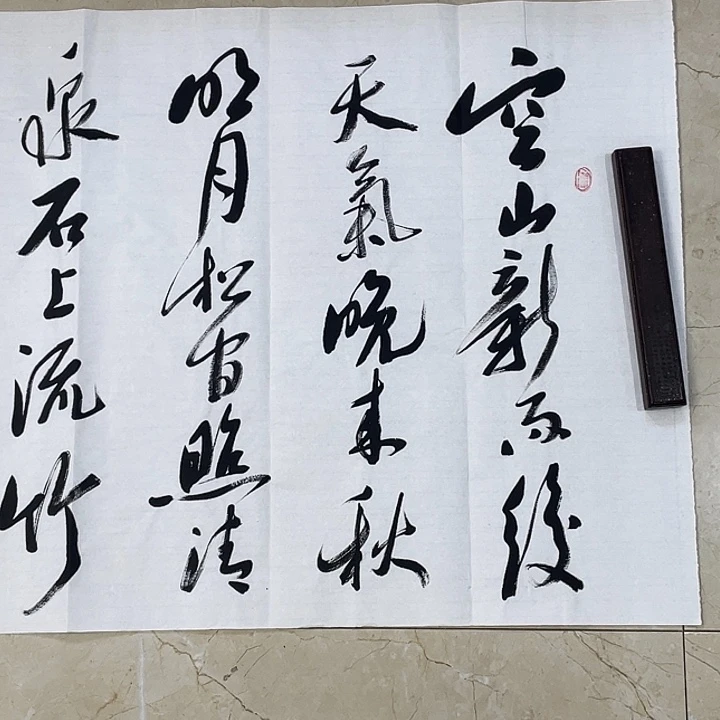 空山新雨後
天氣晚来秋
明月松間照清
泉石上流竹